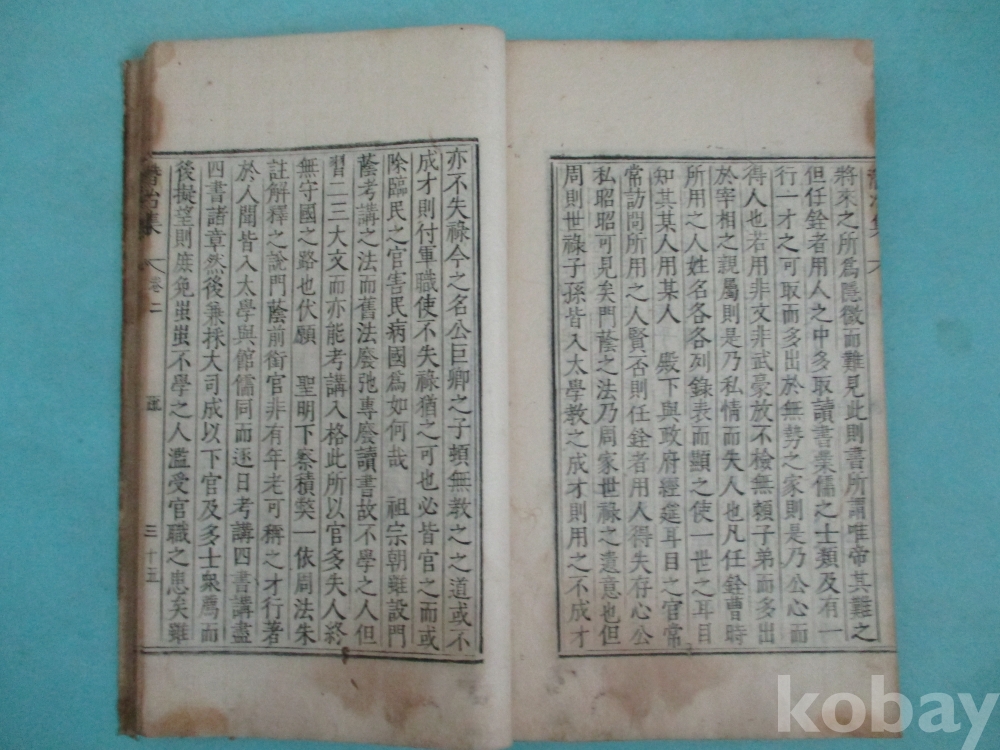 將來之所爲隱微而難見此則書所謂唯帝其難之
但任銓者用人之中多取讀書業儒之士類及有一
行一才之可取而多出於無勢之家則是乃公心而
得人也若用非文非武豪放不檢無賴子弟而多出
於宰相之親屬則是乃私情而失人也凡任銓曹時
所用之人姓名各各列錄表而顯之使一世之耳目
知其某人用某人 殿下與政府經筵耳目之官常
常訪問所用之人賢否則任銓者用人得失存心公
私昭昭可見矣門蔭之法乃周家世祿之遺意也但
周則世祿子孫皆入太學敎之成才則用之不成才
亦不失祿今之名公巨卿之子頓無敎之之道或不
成才則付軍職使不失祿猶之可也必皆官之而或
除臨民之官害民病國爲如何哉 祖宗朝雖設門
蔭考講之法而舊法廢弛專廢讀書故不學之人但
習二三大文而亦能考講入格此所以官多失人終
無守國之路也伏願 聖明下察積獘一依周法朱
註解釋之說門蔭前銜官非有年老可稱之才行著
於人聞皆入太學與館儒同而逐日考講四書講盡
四書諸章然後兼採大司成以下官及多士衆薦而
後擬望則庶免蚩蚩不學之人濫受官職之患矣雖
集 卷二
三十五
kobay